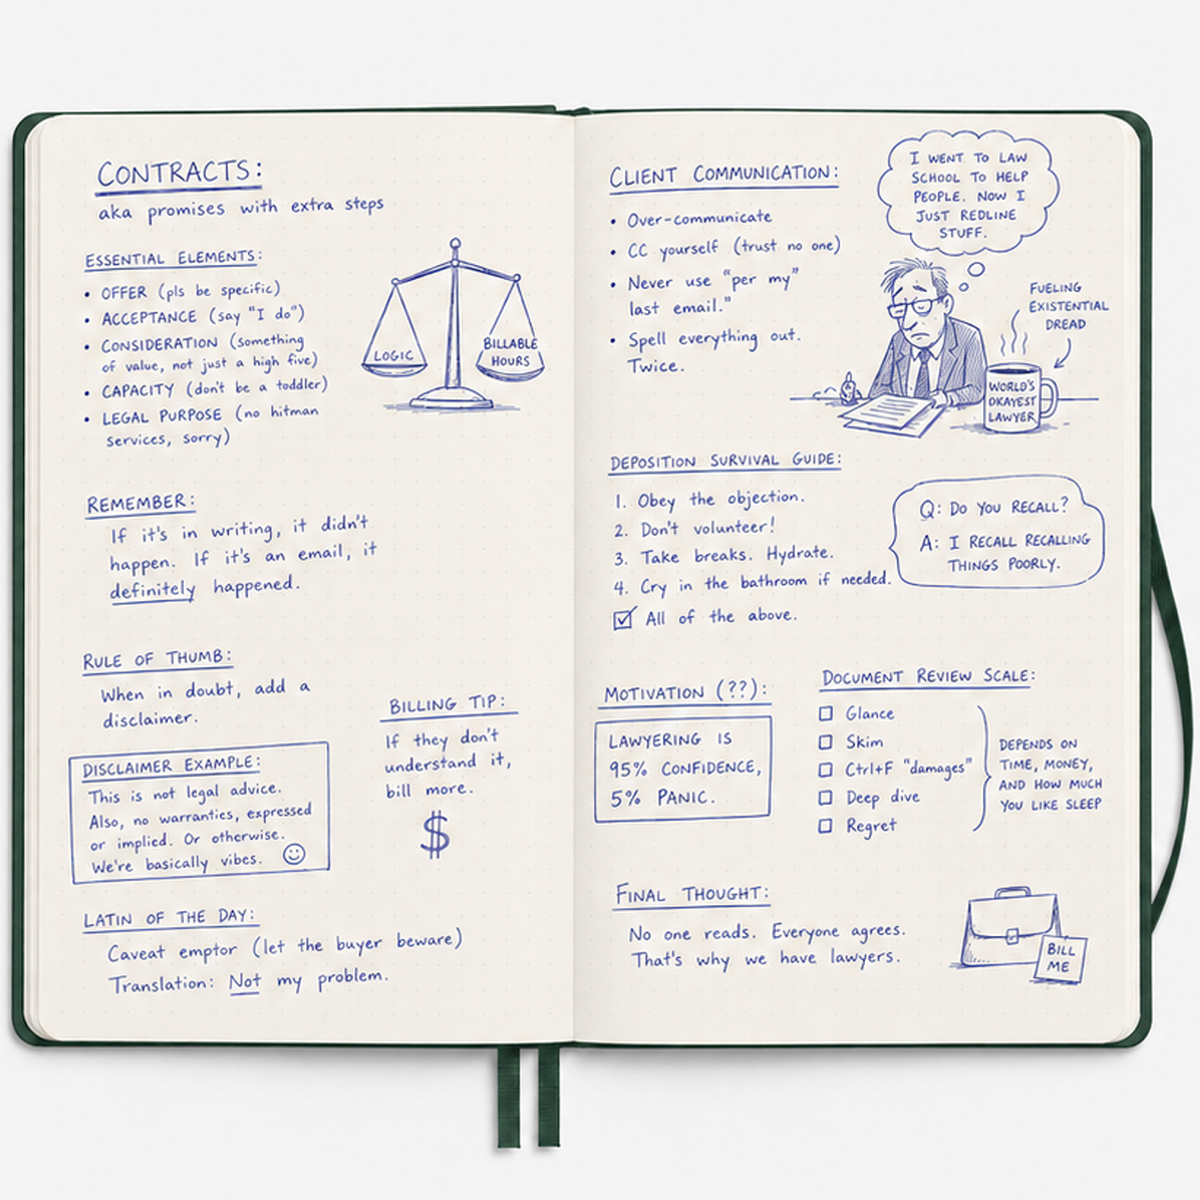 CONTRACTS:
aka promises with extra steps
ESSENTIAL ELEMENTS:
• OFFER (pls be specific)
• ACCEPTANCE (say "I do")
• CONSIDERATION (something
of value, not just a high five)
• CAPACITY (don't be a toddler)
• LEGAL PURPOSE (no hitman
services, sorry)
LOGIC
BILLABLE
HOURS
REMEMBER:
If it's in writing, it didn't
happen. If it's an email, it
definitely happened.
RULE OF THUMB:
When in doubt, add a
disclaimer.
DISCLAIMER EXAMPLE:
This is not legal advice.
Also, no warranties, expressed
or implied. Or otherwise.
We're basically vibes.
BILLING TIP:
If they don't
understand it,
bill more.
$
LATIN OF THE DAY:
Caveat emptor (let the buyer beware)
Translation: Not my problem.
CLIENT COMMUNICATION:
• Over-communicate
• CC yourself (trust no one)
• Never use "per my"
last email."
• Spell everything out.
Twice.
I WENT TO LAW
SCHOOL TO HELP
PEOPLE. NOW I
JUST REDLINE
STUFF.
FUELING
EXISTENTIAL
DREAD
WORLD'S
OKAYEST
LAWYER
DEPOSITION SURVIVAL GUIDE:
1. Obey the objection.
2. Don't volunteer!
3. Take breaks. Hydrate.
4. Cry in the bathroom if needed.
☑ All of the above.
Q: DO YOU RECALL?
A: I RECALL RECALLING
THINGS POORLY.
MOTIVATION (??):
LAWYERING IS
95% CONFIDENCE,
5% PANIC.
DOCUMENT REVIEW SCALE:
☐ Glance
☐ Skim
☐ Ctrl+F "damages"
☐ Deep dive
☐ Regret
DEPENDS ON
TIME, MONEY,
AND HOW MUCH
YOU LIKE SLEEP
FINAL THOUGHT:
No one reads. Everyone agrees.
That's why we have lawyers.
BILL
ME